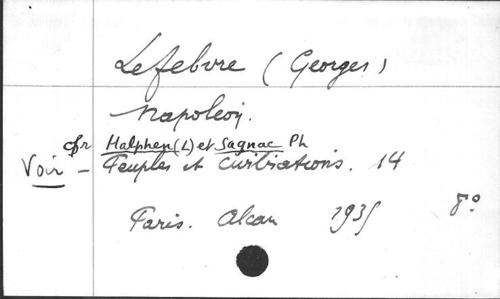 Lefebvre (Georges)
Napoléon.
cfr Halphen (L) et Sagnac Ph
Voir - Peuples et civilisations. 14
Paris. Alcan 1935 8°